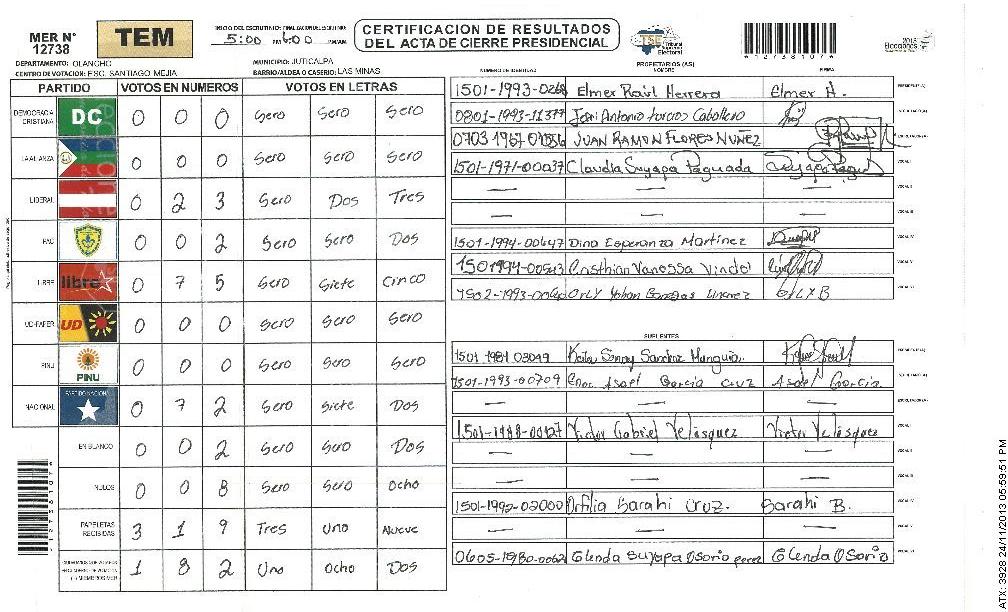 MER N° 12738
TEM
INICIO DEL ESCRUTINIO: 5:00 PM
6:00 PM/AM
CERTIFICACION DE RESULTADOS DEL ACTA DE CIERRE PRESIDENCIAL
TSE Tribunal Supremo Electoral
*12738107*
2013 Elecciones
DEPARTAMENTO: OLANCHO
MUNICIPIO: JUTICALPA
CENTRO DE VOTACION: ESC. SANTIAGO MEJIA
BARRIO/ALDEA O CASERIO: LAS MINAS
PARTIDO VOTOS EN NUMEROS VOTOS EN LETRAS
DEMOCRACIA CRISTIANA DC 0 0 0 Sero Sero Sero
LA ALIANZA 0 0 0 Sero Sero Sero
LIBERAL 0 2 3 Sero Dos Tres
PAC 0 0 2 Sero Sero Dos
LIBRE libre 0 7 5 Sero Siete Cinco
UD-FAPER UD 0 0 0 Sero Sero Sero
PINU PINU 0 0 0 Sero Sero Sero
NACIONAL PARTIDO NACIONAL 0 7 2 Sero Siete Dos
EN BLANCO 0 0 2 Sero Sero Dos
NULOS 0 0 8 Sero Sero Ocho
PAPELETAS RECIBIDAS 3 1 9 Tres Uno Nueve
1 8 2 Uno Ocho Dos
PROPIETARIOS (AS)
NUMERO DE IDENTIDAD NOMBRE FIRMA
1501-1993-0268 Elmer Raúl Herrera Elmer H. PRESIDENTE(A)
0801-1993-11377 Jose Antonio Turcios Caballero
0703 1967 JUAN RAMON FLORES NUÑEZ
1501-1971-00037 Claudia Suyapa Paguada VOCAL I
1501-1994-00647 Dina Esperanza Martinez VOCAL IV
1501 1994-00543 Cristhian Vanessa VOCAL V
1502-1993- Orly Yohan ORLY B
SUPLENTES
1501 1984 03049 Keila PRESIDENTE(A)
1501-1993-00709 Asael Garcia Cruz Asael Garcia
1501-1988-00127 Victor Gabriel Velásquez Victor Velásquez VOCAL I
1501-1992-02000 Sarahi Cruz. Sarahi B. VOCAL IV
VOCAL V
0605-1980- Glenda Suyapa Osorio perez Glenda Osorio
ATX: 3928 24/11/2013 05:59:51 PM